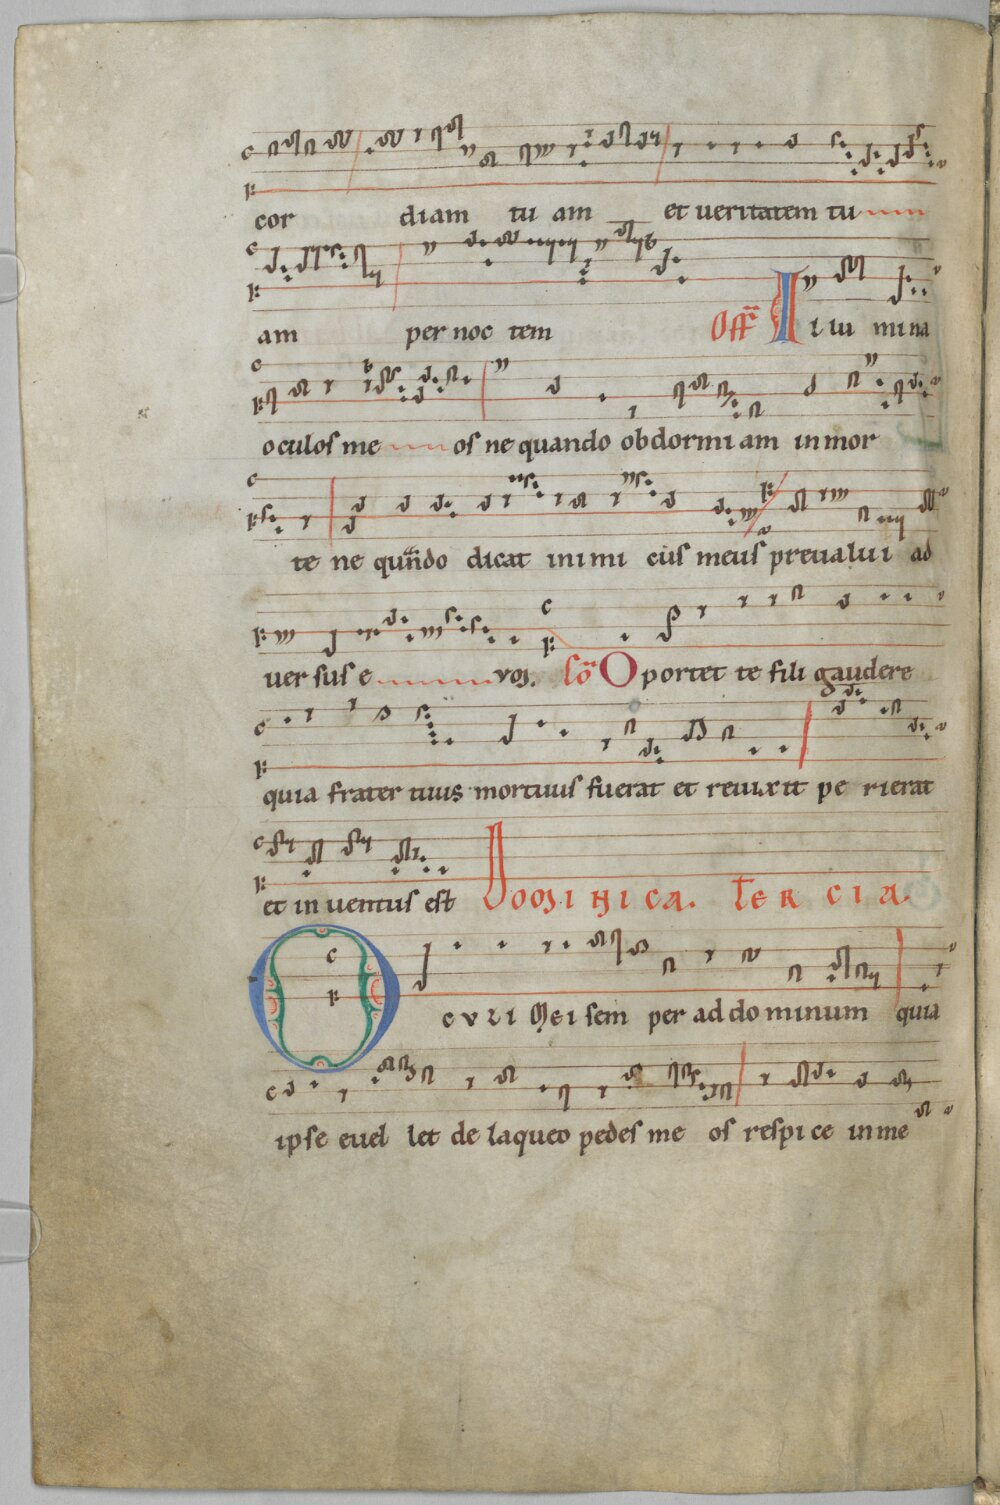 cor diam tu am et ueritatem tu
am per noc tem Off I llu mina
oculos me os ne quando obdormi am in mor
te ne quando dicat inimi cus meus preualui ad
uer sus e vos. Co O portet te fili gaudere
quia frater tuus mortuus fuerat et reuixit pe rierat
et in uentus est Dominica. Tercia.
O cvli Mei sem per ad do minum quia
ipse euel let de laqueo pedes me os respi ce in me